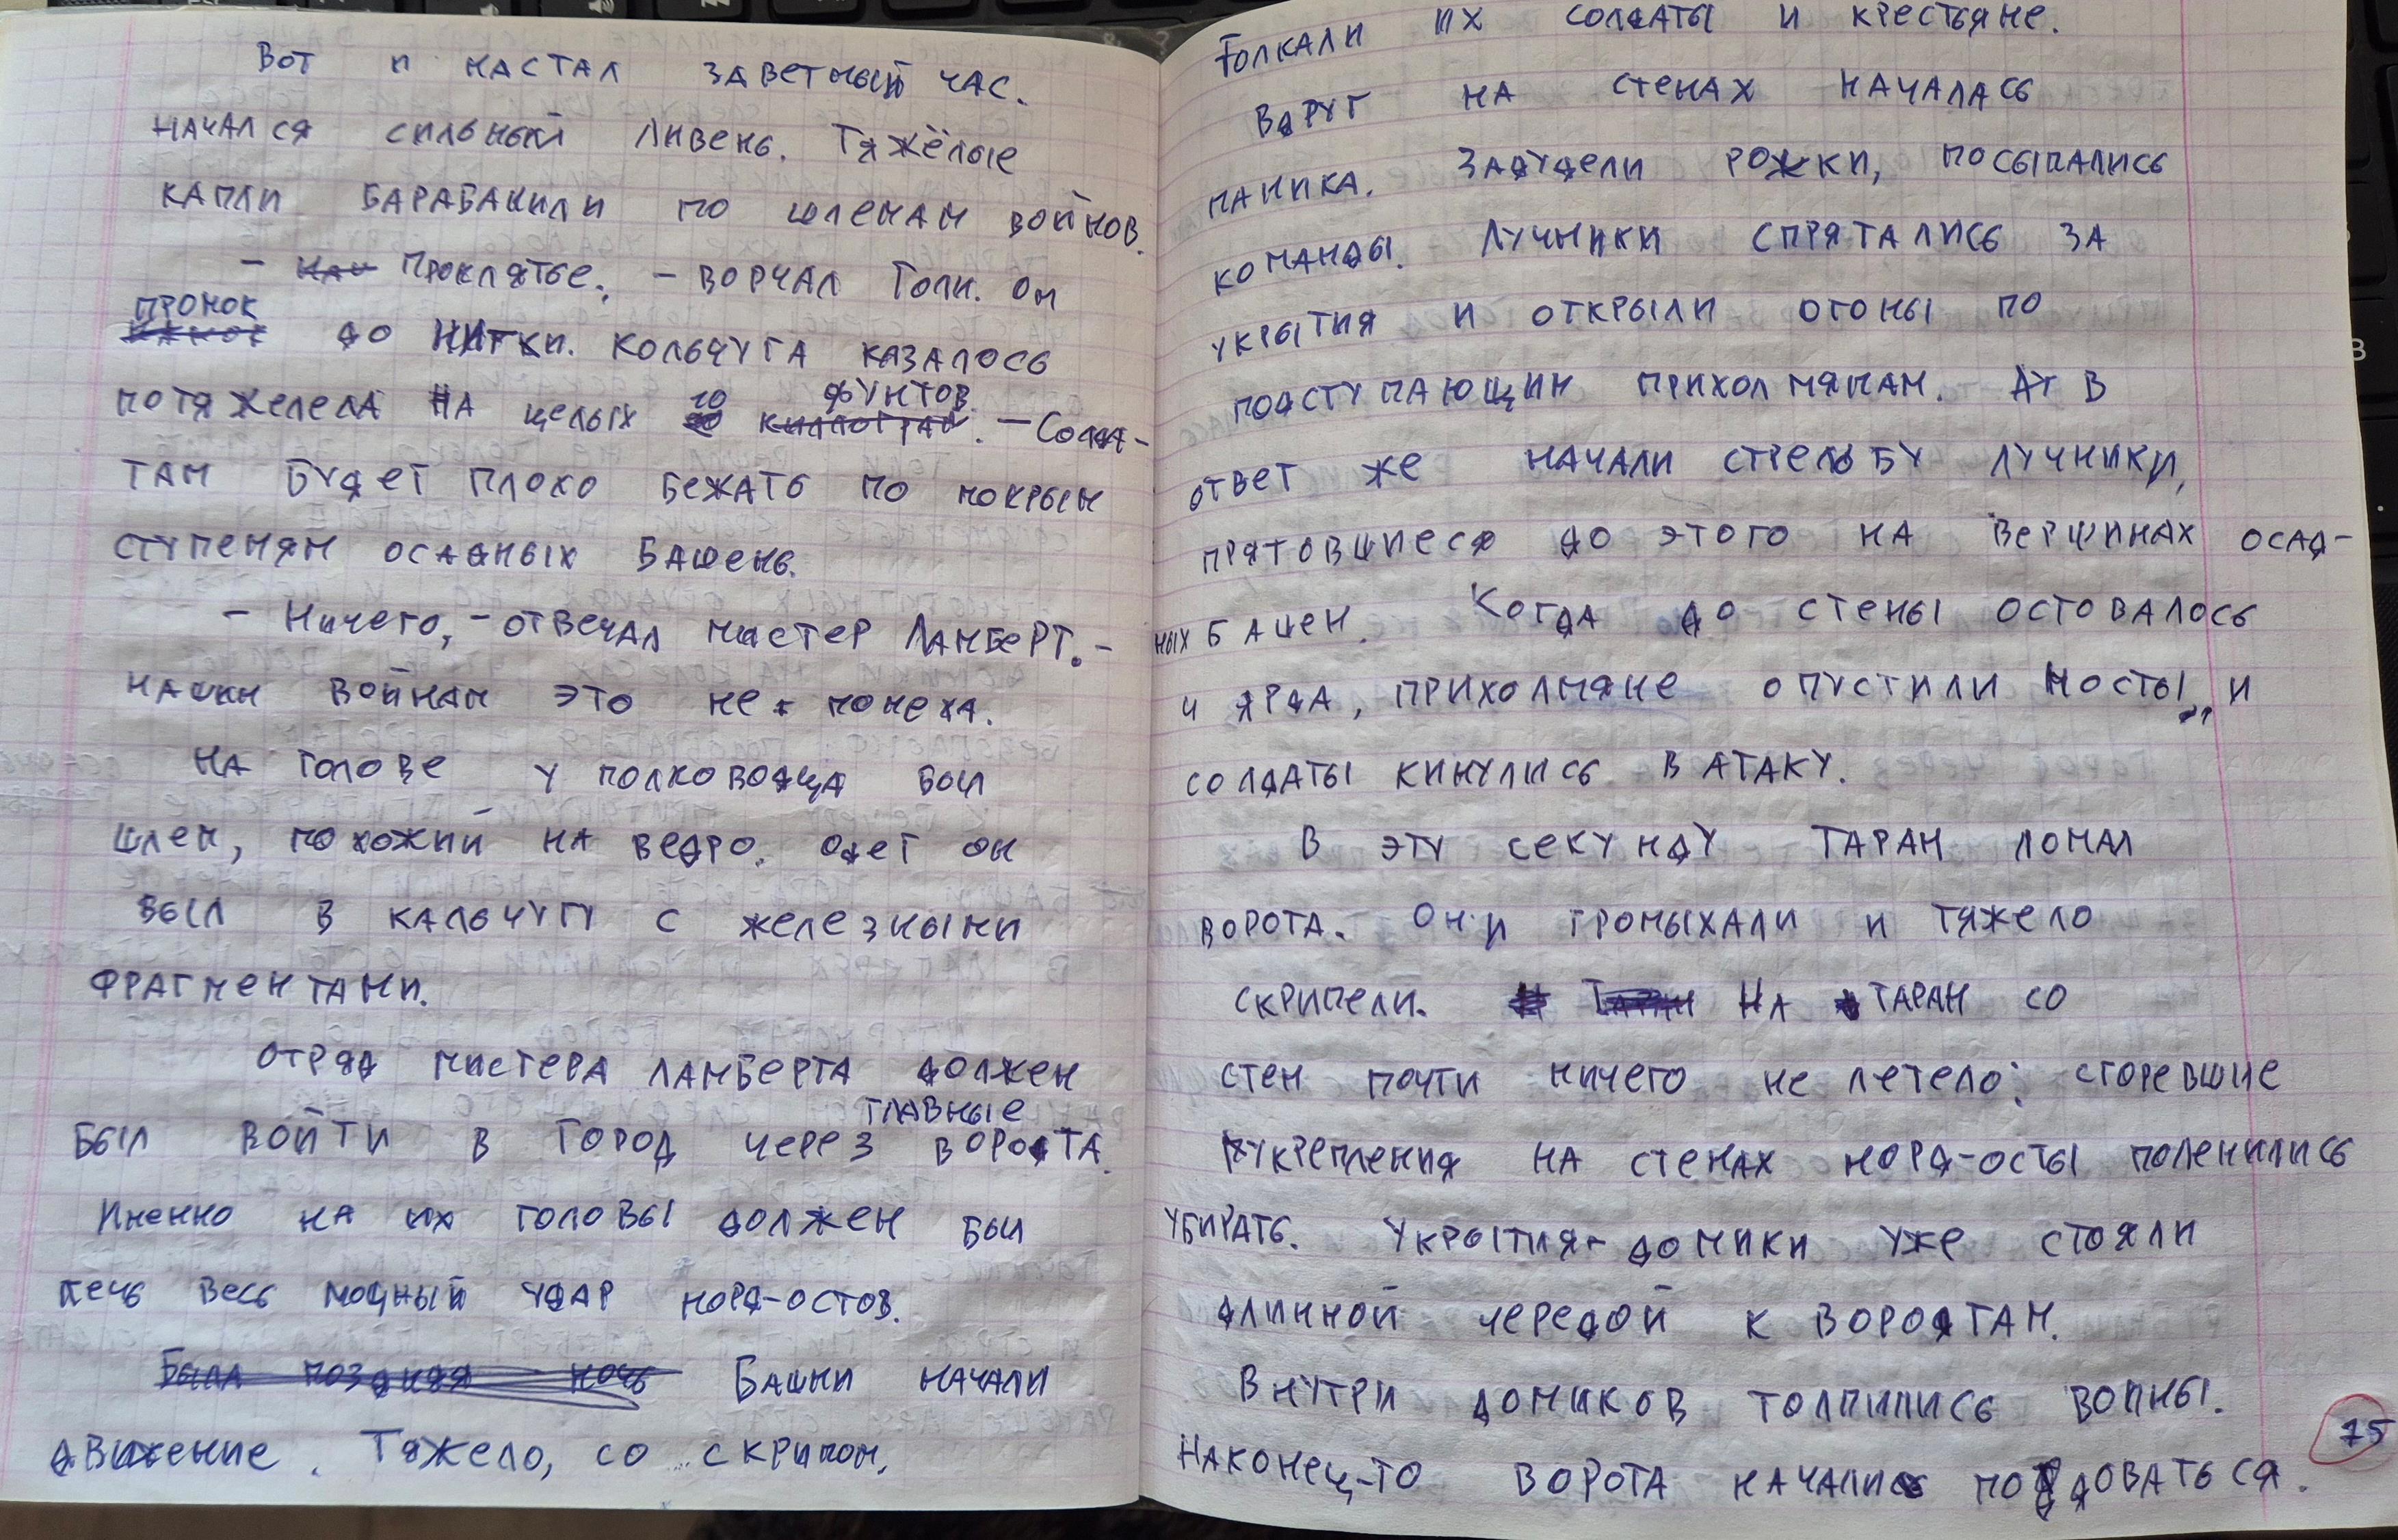 Вот и настал заветный час.
начался сильный ливень. Тяжёлые
капли барабанили по шлемам войнов.
- Проклятье, - ворчал Голи. Он
промок до нитки. Кольчуга казалось
потяжелела на целых 10 фунтов. - Солда-
там будет плохо бежать по мокрым
ступеням осадных башень.
- Ничего, - отвечал мистер Ламберт. -
нашим войнам это не помеха.
На голове у полководца был
шлем, похожий на ведро. Одет он
был в кальчугу с железными
фрагментами.
Отряд мистера Ламберта должен
был войти в город через главные ворота.
Именно на их головы должен был
лечь весь мощный удар норд-остов.
Была поздняя ночь Башни начали
движение. Тяжело, со скрипом,
толкали их солдаты и крестьяне.
Вдруг на стенах началась
паника. Задудели рожки, посыпались
команды. Лучники спрятались за
укрытия и открыли огоны по
подступающим прихолмянам. Ат в
ответ же начали стрельбу лучники,
прятовшиеся до этого на вершинах осад-
ных башен. Когда до стены оставалось
4 ярда, прихолмяне опустили мосты, и
солдаты кинулись в атаку.
В эту секунду таран ломал
ворота. Они громыхали и тяжело
скрипели. Таран На таран со
стен почти ничего не летело: сгоревшие
укрепления на стенах норд-осты поленились
убирать. Укрытия-домики уже стояли
длинной чередой к воротам.
Внутри домиков толпились войны.
Наконец-то ворота начали поддоваться.
75